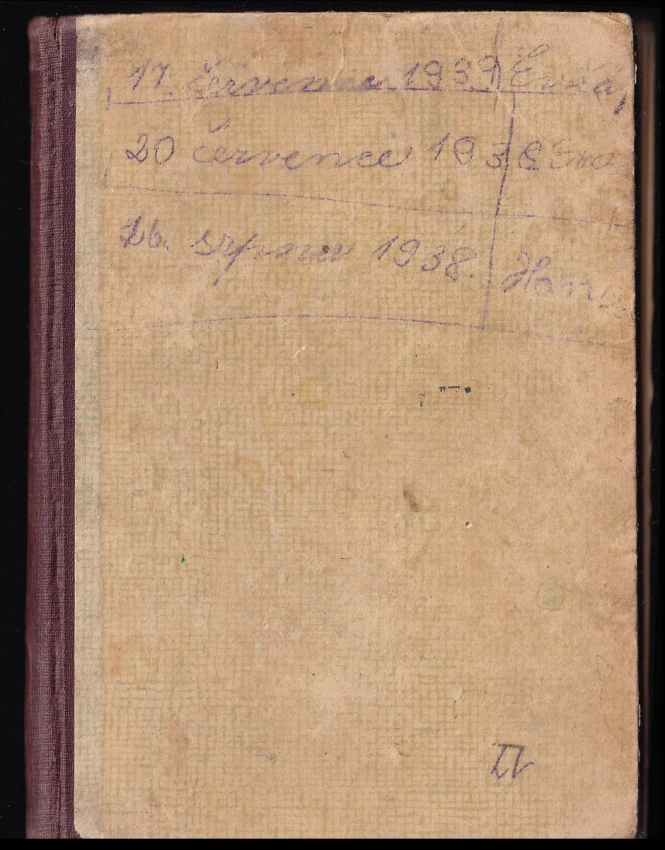 17. července 1939 Evža,
20 července 1938 Eva
26. srpnev 1938. Hana
II